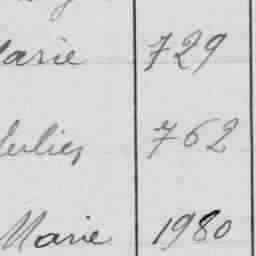 Marie 729
Julien 762
Marie 1980